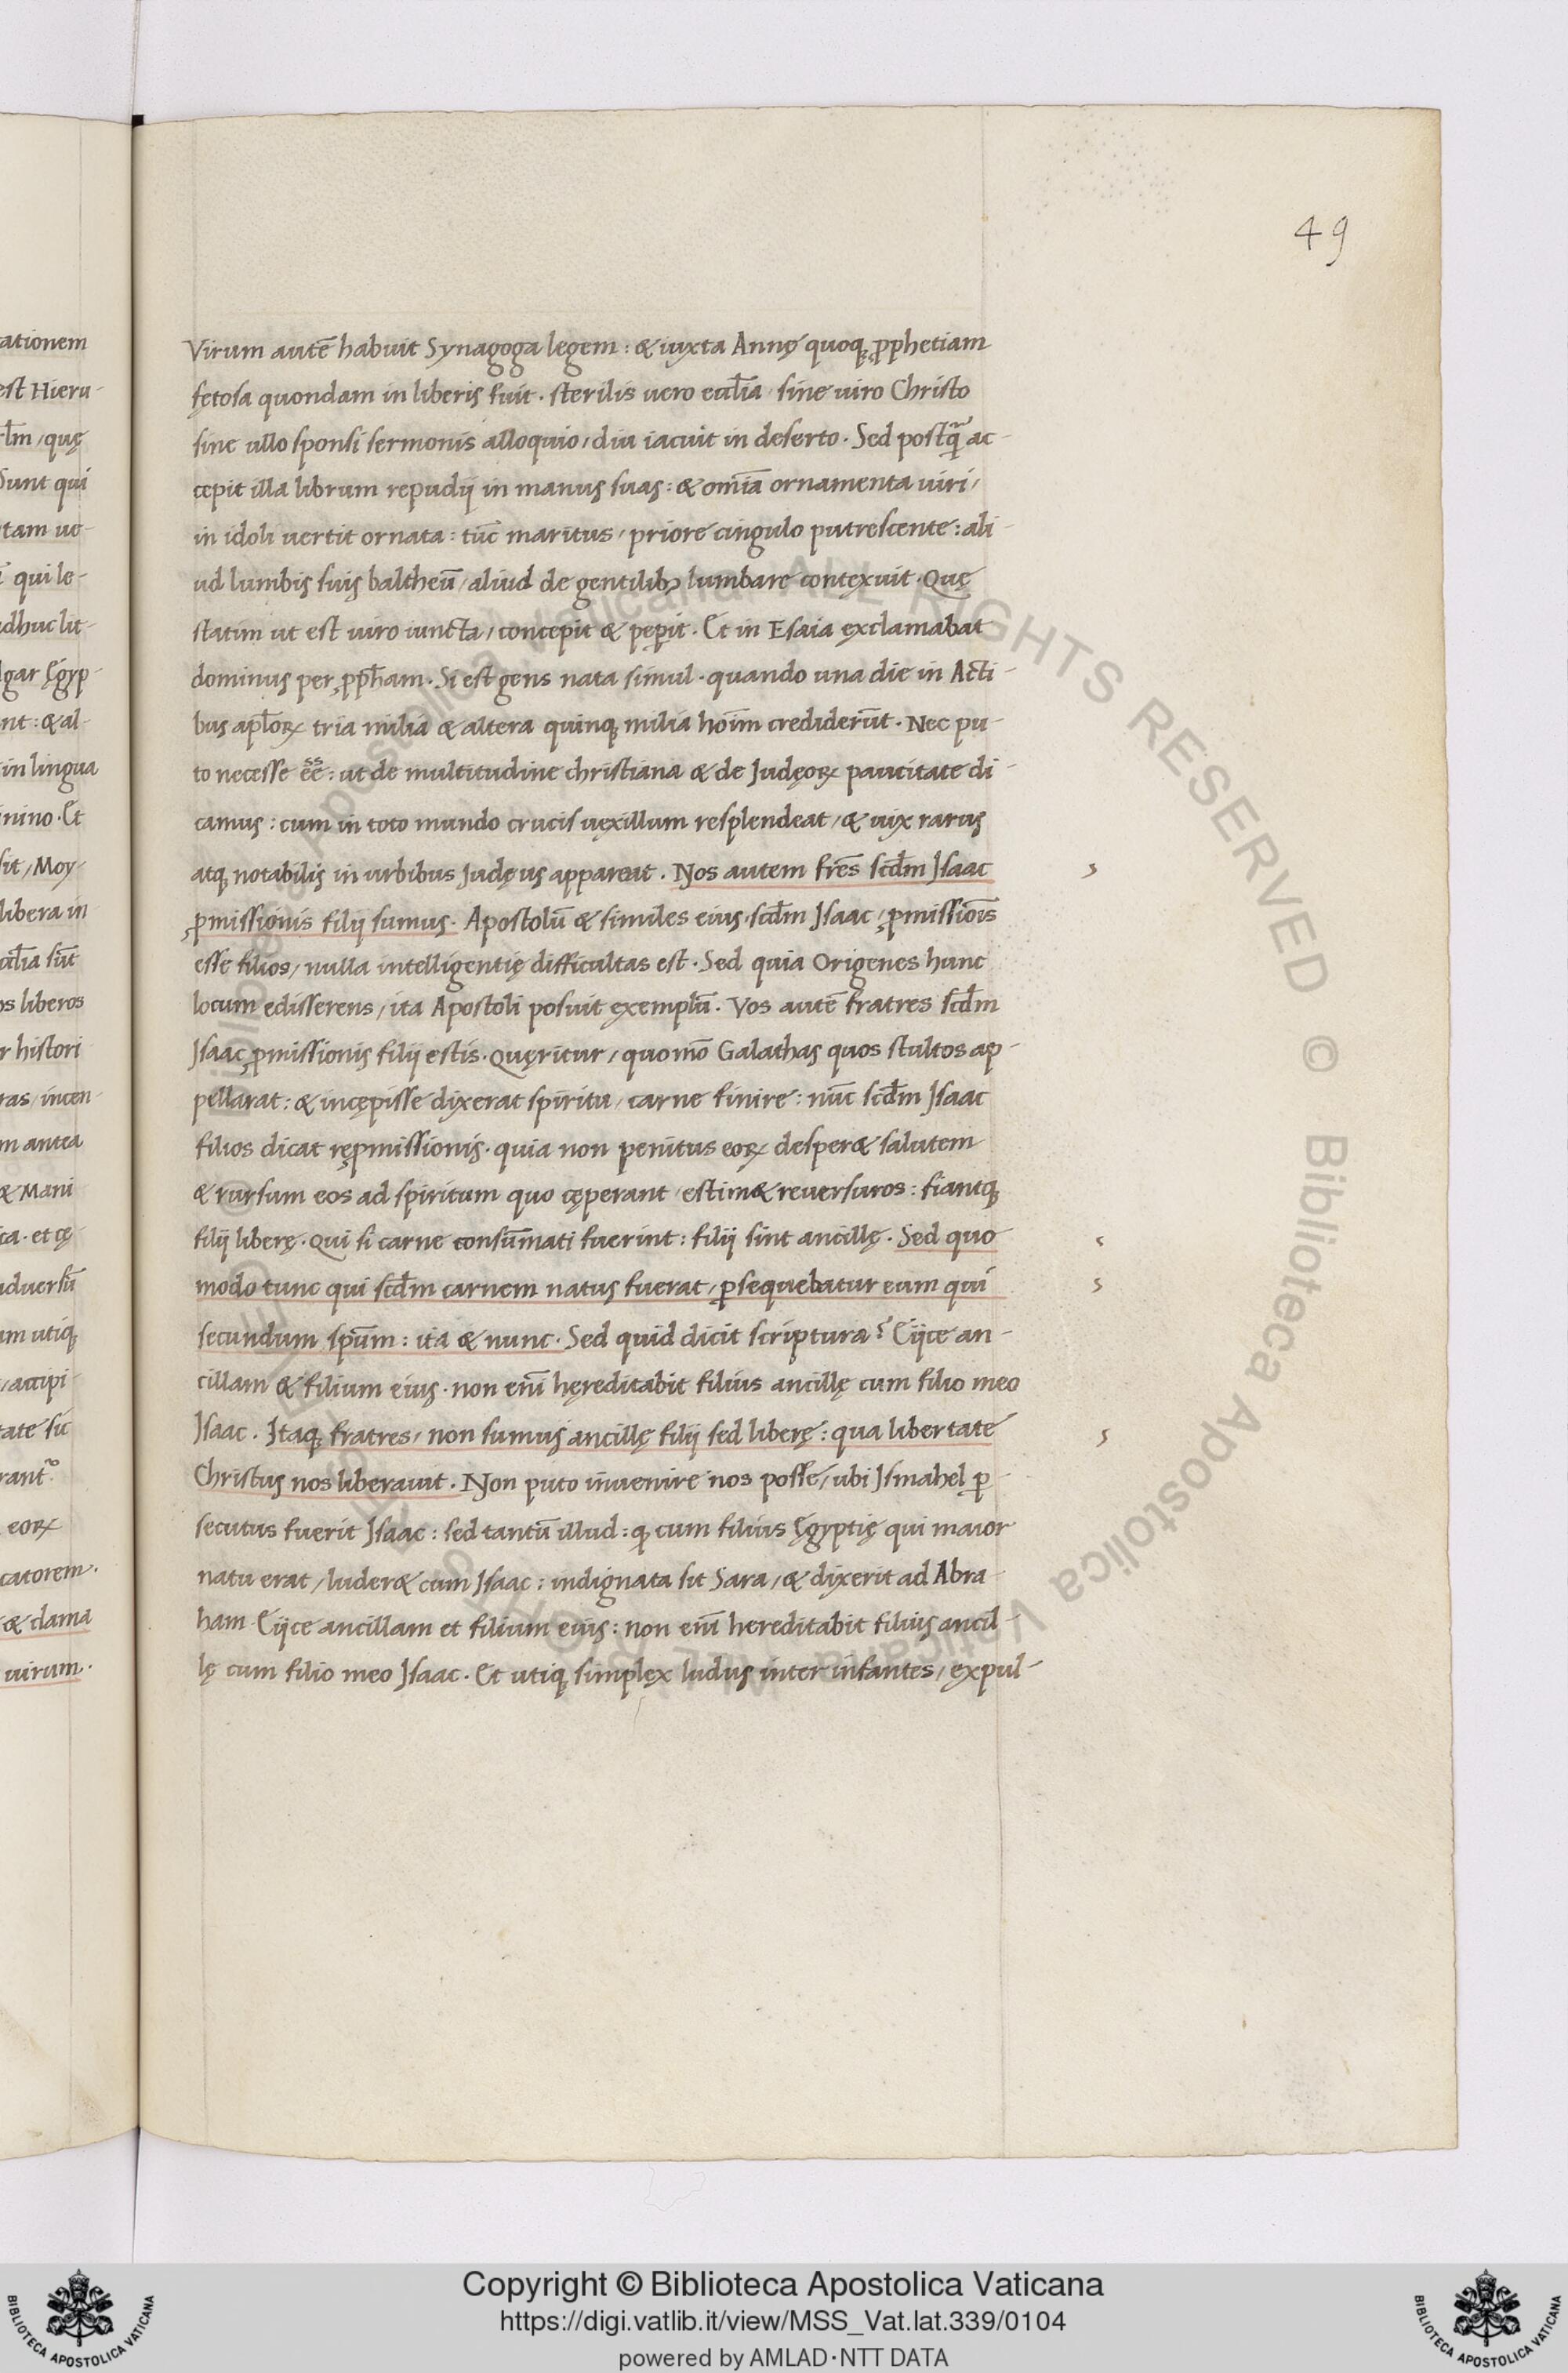 49
Virum autē habuit Synagoga legem: & iuxta Annę quoq; ꝓphetiam
fetosa quondam in liberis fuit. sterilis uero eccl̄ia / sine uiro Christo
sine ullo sponsi sermonis alloquio / diu iacuit in deserto. Sed postꝗ̄ ac-
cepit illa librum repudij in manus suas: & om̄ia ornamenta uiri /
in idoli uertit ornata: tūc maritus / priore cingulo putrescente: ali-
ud lumbis suis baltheū / aliud de gentilibꝫ lumbare contexuit. Quę
statim ut est uiro iuncta / concepit & pepit. Et in Esaia exclamabat
dominus per ꝓph̄am. Si est gens nata simul. quando una die in Acti-
bus apl̄oꝝ tria milia & altera quinq; milia hoīm crediderūt. Nec pu-
to necesse ēē: ut de multitudine christiana & de Judęoꝝ paucitate di-
camus: cum in toto mundo crucis uexillum resplendeat / & uix rarus
atq; notabilis in urbibus Judęus appareat. Nos autem fr̄es scd̄m Isaac
ꝓmissionis filij sumus. Apostolū & similes eius. scd̄m Isaac / ꝓmissiōis
esse filios / nulla intelligentię difficultas est. Sed quia Origenes hunc
locum edisserens / ita Apostoli posuit exemplū. Vos autē fratres scd̄m
Isaac ꝓmissionis filij estis. Quęritur / quomō Galathas quos stultos ap-
pellarat: & incępisse dixerat spiritu / carne finire: nūc scd̄m Isaac
filios dicat reꝓmissionis. quia non penitus eoꝝ desper& salutem
& rursum eos ad spiritum quo cęperant / estim& reuersuros: fiantq;
filij liberę. Qui si carne consūmati fuerint: filij sint ancillę. Sed quo
modo tunc qui scd̄m carnem natus fuerat / ꝑsequebatur eum qui
secundum sp̄um: ita & nunc. Sed quid dicit scriptura? Eijce an-
cillam & filium eius. non enī hęreditabit filius ancillę cum filio meo
Isaac. Itaq; fratres / non sumus ancillę filij sed liberę: qua libertate
Christus nos liberauit. Non puto inuenire nos posse / ubi Ismahel ꝑ-
secutus fuerit Isaac: sed tantū illud: ꝙ cum filius Ęgyptię qui maior
natu erat / luder& cum Isaac: indignata sit Sara / & dixerit ad Abra-
ham. Eijce ancillam et filium eius: non enī hereditabit filius ancil-
lę cum filio meo Isaac. Et utiq; simplex ludus inter infantes / expul-
Copyright © Biblioteca Apostolica Vaticana
https://digi.vatlib.it/view/MSS_Vat.lat.339/0104
powered by AMLAD·NTT DATA
BIBLIOTECA APOSTOLICA VATICANA
BIBLIOTECA APOSTOLICA VATICANA